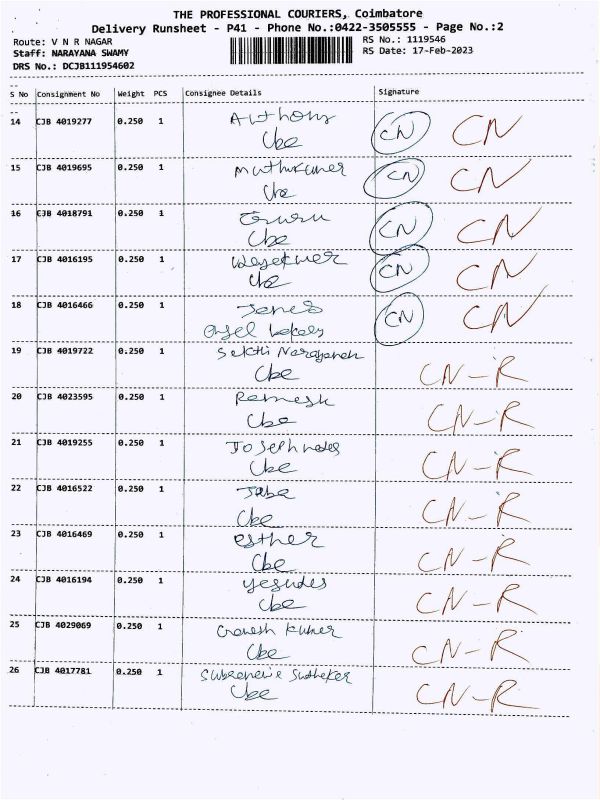 THE PROFESSIONAL COURIERS, Coimbatore
Delivery Runsheet - P41 - Phone No.:0422-3505555 - Page No.:2
Route: V N R NAGAR
RS No.: 1119546
Staff: NARAYANA SWAMY
RS Date: 17-Feb-2023
DRS No.: DCJB111954602
S No Consignment No Weight PCS Consignee Details Signature
14 CJB 4019277 0.250 1 Anthony CN CN
Cbe
15 CJB 4019695 0.250 1 Muthukumer CN CN
Cbe
16 CJB 4018791 0.250 1 Guru CN CN
Cbe
17 CJB 4016195 0.250 1 CN CN
Cbe
18 CJB 4016466 0.250 1 James CN CN
19 CJB 4019722 0.250 1 Sekthi Narayanan
Cbe CN-R
20 CJB 4023595 0.250 1 Remesh
Cbe CN-R
21 CJB 4019255 0.250 1
Cbe CN-R
22 CJB 4016522 0.250 1 Jaba
Cbe CN-R
23 CJB 4016469 0.250 1 esther
Cbe CN-R
24 CJB 4016194 0.250 1 yesudes
Cbe CN-R
25 CJB 4029069 0.250 1 Ganesh Kumer
Cbe CN-R
26 CJB 4017781 0.250 1
Cbe CN-R